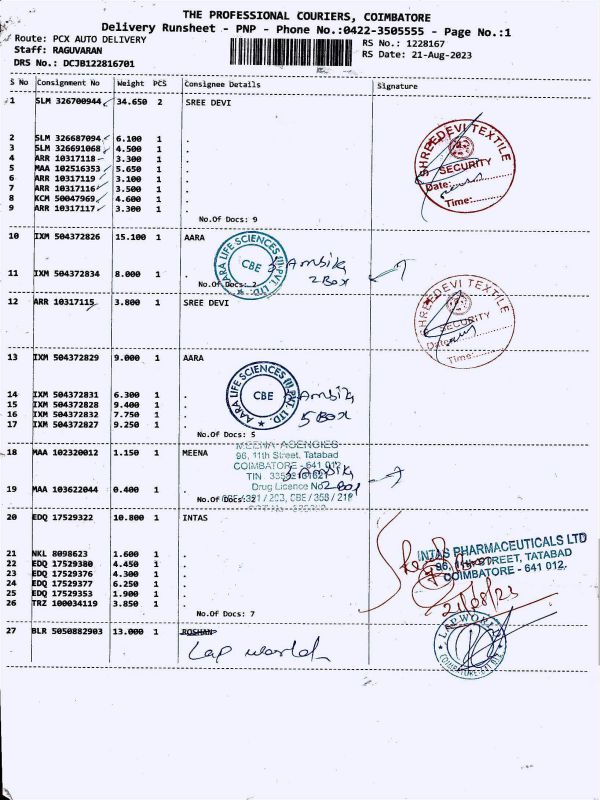 THE PROFESSIONAL COURIERS, COIMBATORE
Delivery Runsheet - PNP - Phone No.:0422-3505555 - Page No.:1
Route: PCX AUTO DELIVERY
RS No.: 1228167
Staff: RAGUVARAN
RS Date: 21-Aug-2023
DRS No.: DCJB122816701
S No Consignment No Weight PCS Consignee Details Signature
1 SLM 326700944 34.650 2 SREE DEVI
2 SLM 326687094 6.100 1 .
3 SLM 326691068 4.500 1 .
4 ARR 10317118 3.300 1 .
5 MAA 102516353 5.650 1 .
6 ARR 10317119 3.100 1 .
7 ARR 10317116 3.500 1 .
8 KCM 50047969 4.600 1 .
9 ARR 10317117 3.300 1 .
No.Of Docs: 9
SHREEDEVI TEXTILE
SECURITY
Date:
Time:
10 IXM 504372826 15.100 1 AARA
11 IXM 504372834 8.000 1 .
No.Of Docs: 2
AARA LIFE SCIENCES (I) PVT. LTD.
CBE
Ambika
2 Box
12 ARR 10317115 3.800 1 SREE DEVI
SHREEDEVI TEXTILE
SECURITY
Date:
Time:
13 IXM 504372829 9.000 1 AARA
14 IXM 504372831 6.300 1 .
15 IXM 504372828 9.400 1 .
16 IXM 504372832 7.750 1 .
17 IXM 504372827 9.250 1 .
No.Of Docs: 5
AARA LIFE SCIENCES (I) PVT. LTD.
CBE
Ambika
5 Box
18 MAA 102320012 1.150 1 MEENA
19 MAA 103622044 0.400 1 .
No.Of Docs:
MEENA AGENCIES
96, 11th Street, Tatabad
COIMBATORE - 641 012.
TIN
Drug Licence No
CBE / 358 / 21B
Ambika
2 Box
20 EDQ 17529322 10.800 1 INTAS
21 NKL 8098623 1.600 1 .
22 EDQ 17529380 4.450 1 .
23 EDQ 17529376 4.300 1 .
24 EDQ 17529377 6.250 1 .
25 EDQ 17529353 1.900 1 .
26 TRZ 100034119 3.850 1 .
No.Of Docs: 7
INTAS PHARMACEUTICALS LTD
96, 11th STREET, TATABAD
COIMBATORE - 641 012.
21/08/23
27 BLR 5050882903 13.000 1 ROSHAN
Lap world
LAP WORLD
COIMBATORE-641 012